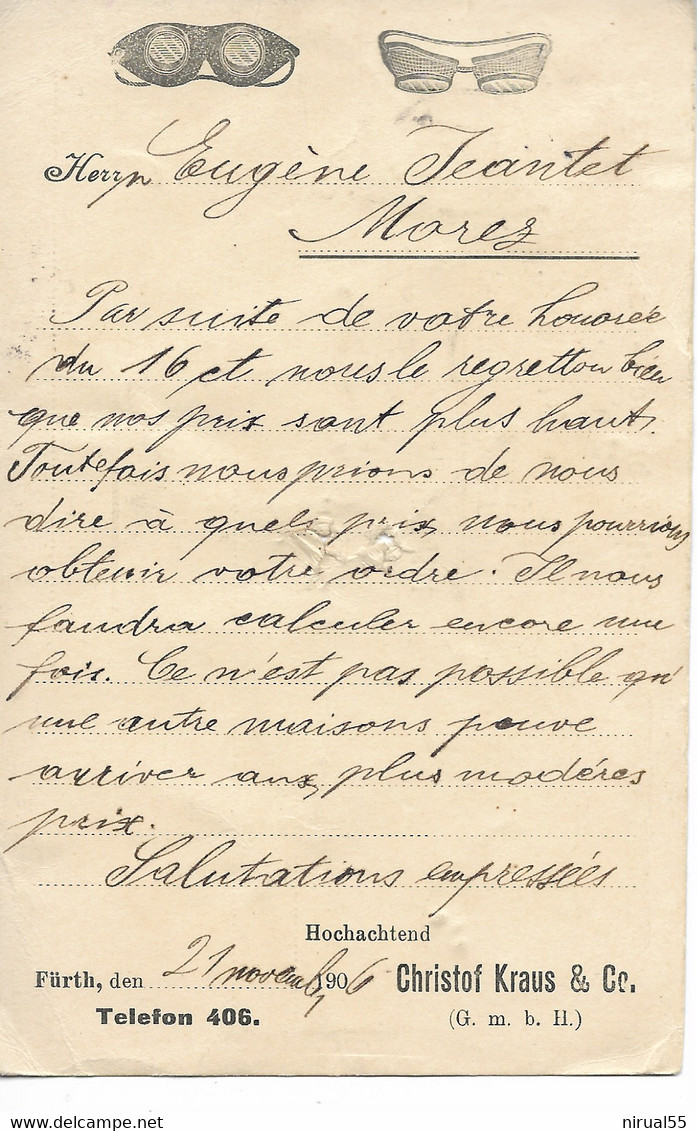 Herrn Eugène Jeantet
Morez
Par suite de votre honorée
du 16 ct nous le regretton bien
que nos prix sont plus hauts.
Toutefois nous prions de nous
dire à quels prix nous pourrions
obtenir votre ordre. Il nous
faudra calculer encore une
fois. Ce n'est pas possible qu'
une autre maisons peuve
arriver aux plus modéres
prix.
Salutations empressées
Hochachtend
Fürth, den 21 novemb, 1906 Christof Kraus & Co.
Telefon 406. (G. m. b. H.)
delcampe.net
nirual55